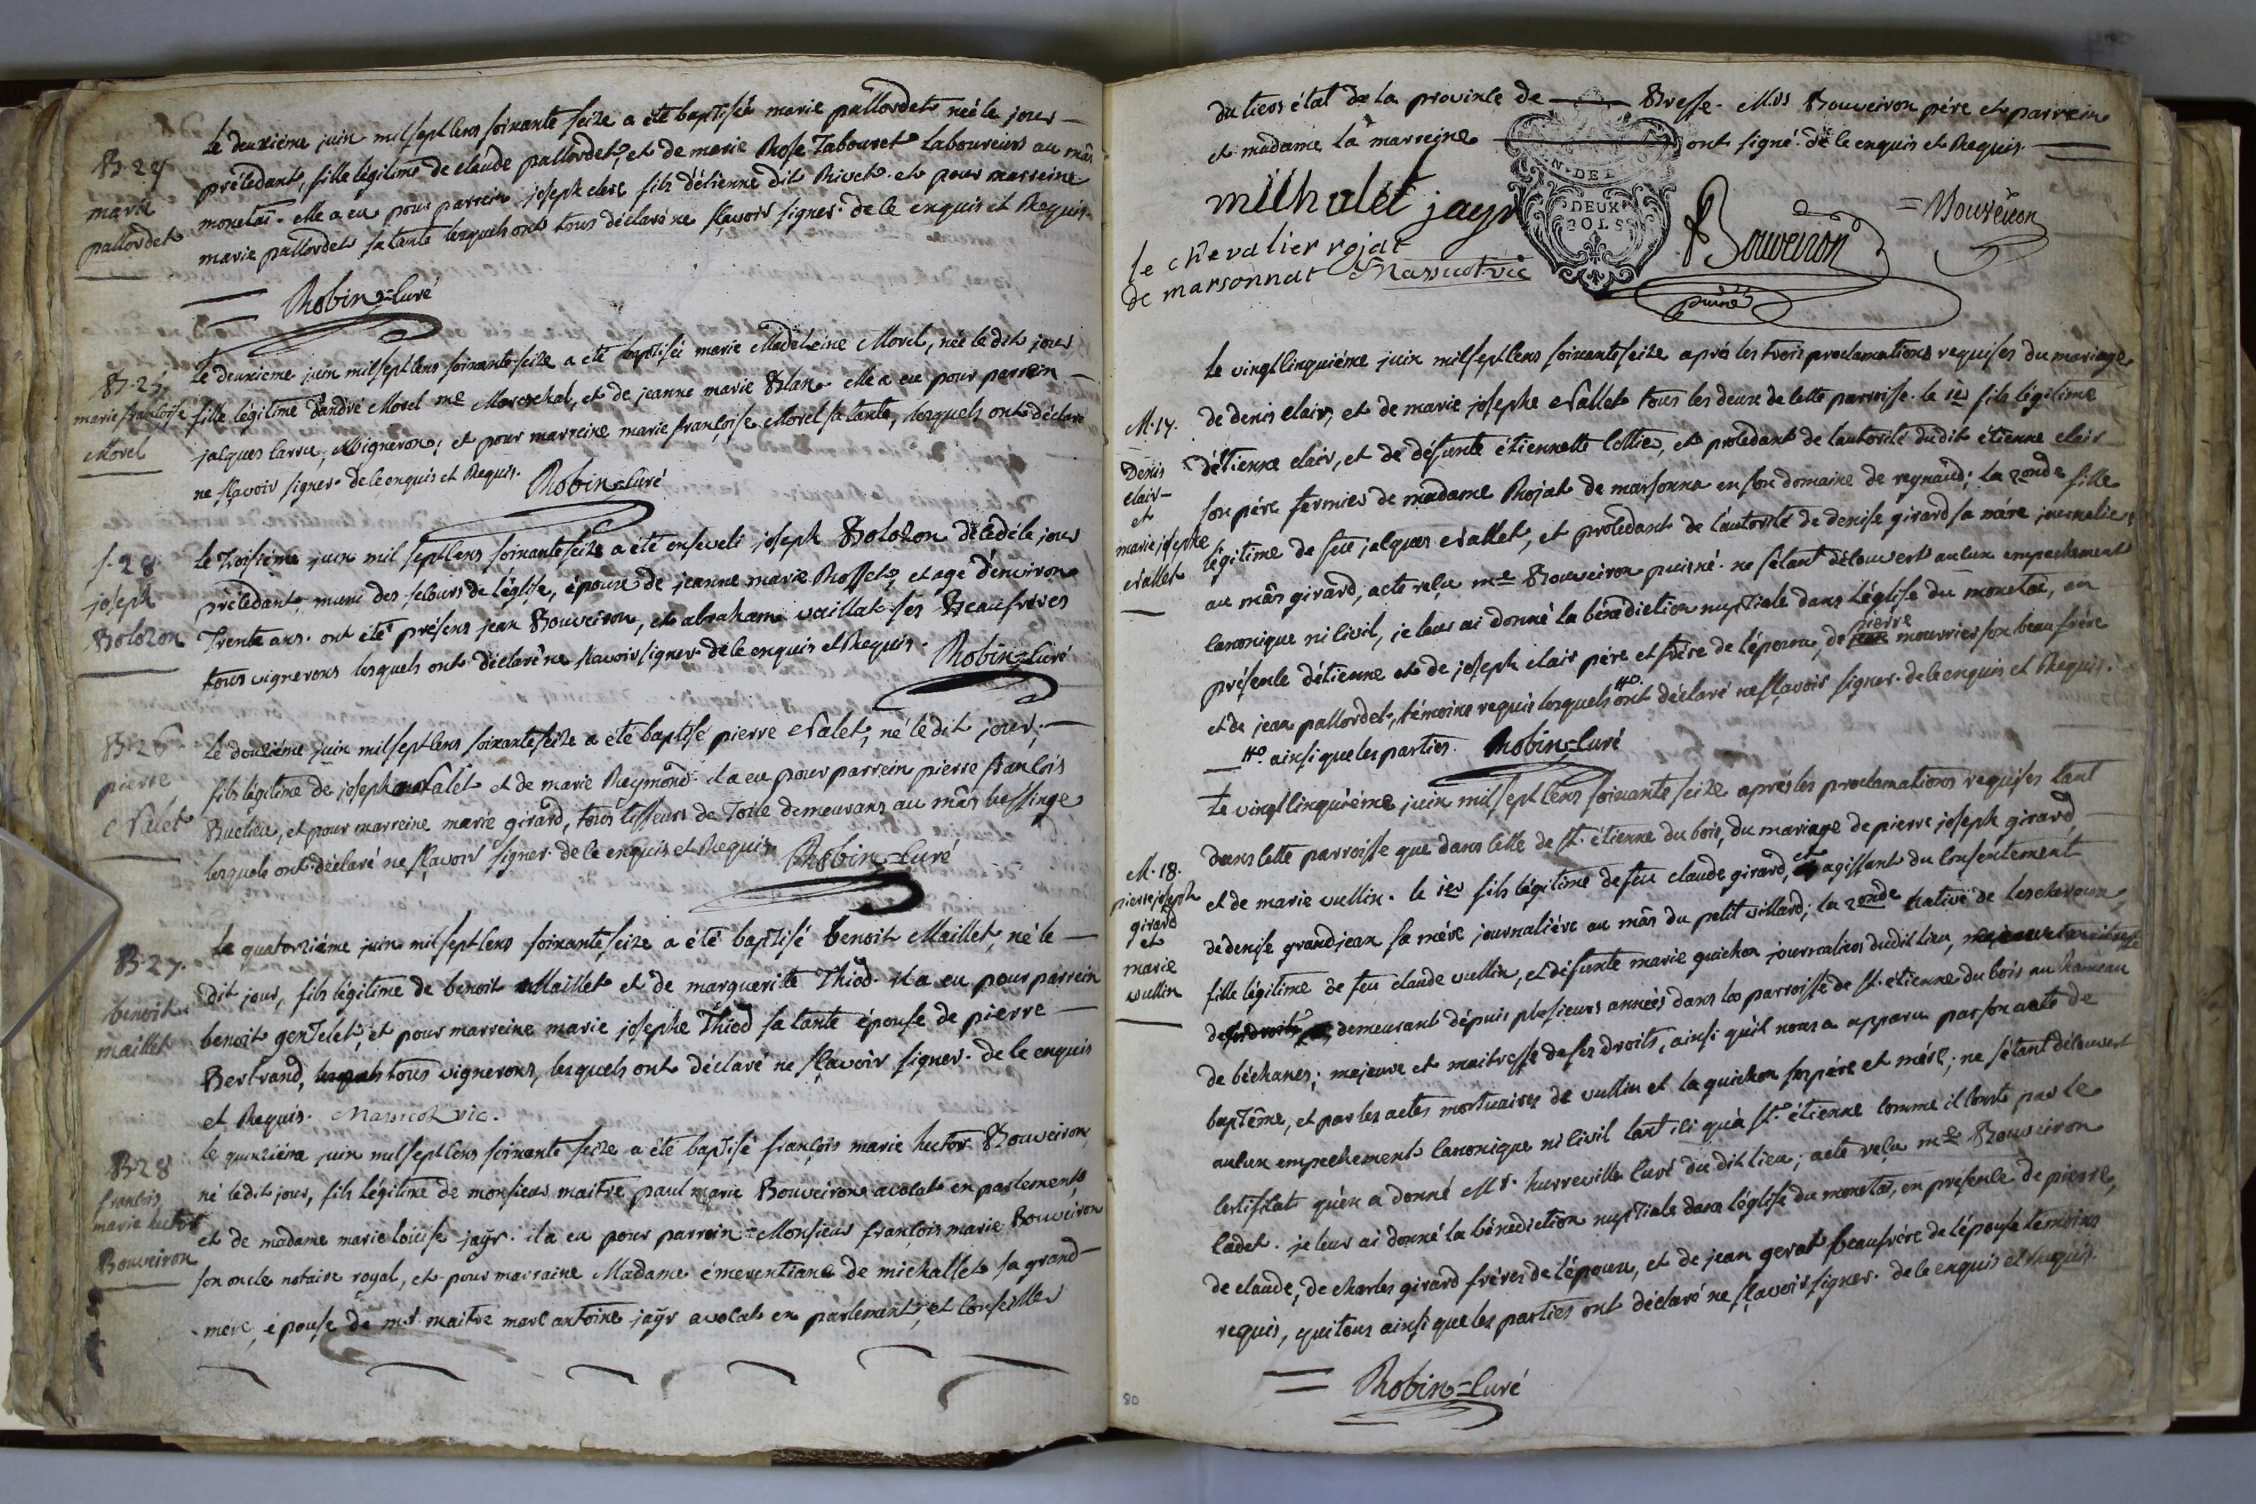 B. 24
marie
pallordet
Le deuxiéme juin mil sept cens soixante seize a eté baptisée marie pallordet née le jour
précedant, fille légitime de claude pallordet, et de marie Rose Tabouret Laboureurs au mâs
monetaÿ. elle a eu pour parrein joseph clerc fils d'étienne dit Rivet. et pour marreine
marie pallordet sa tante lesquels ont tous déclaré ne sçavoir signer. de ce enquis et Requis.
Robin = Curé
B. 25.
marie françoise
Morel
Le deuxieme juin mil sept cens soixante-seize a eté baptisée marie Madeleine Morel, née le dit jour
fille légitime d'andré Morel me Mareschal, et de jeanne marie Blanc elle a eu pour parrein
jacques carru, Vigneron; et pour marreine marie françoise Morel sa tante, lesquels ont déclaré
ne sçavoir signer. de ce enquis et Requis. Robin = Curé
S. 28.
joseph
Bolozon
Le Troisiéme juin mil sept cens soixante seize a été enseveli joseph Bolozon décédé le jour
précedant, muni des secours de l'église, époux de jeanne marie Rosset, et agé d'environ
Trente ans. ont été présens jean Bouveiron, et abraham vaillat ses Beaufréres
tous vignerons lesquels ont déclaré ne sçavoir signer de ce enquis et Requis. Robin = Curé
B. 26
pierre
Nalet
Le douziéme juin mil sept cens soixante seize a été baptisé pierre Nalet, né le dit jour,
fils légitime de joseph Nalet et de marie Reymond. il a eu pour parrein pierre françois
Buclieu, et pour marreine marie girard, tous tisseurs de Toile demeurans au mâs bessinge
lesquels ont déclaré ne sçavoir signer. de ce enquis et Requis. Robin = Curé
B. 27.
benoit
maillet
Le quatorziéme juin mil sept cens soixante seize a été baptisé benoit Maillet, né le
dit jour, fils légitime de benoit Maillet et de marguerite Thiod. il a eu pour parrein
benoit genTelet, et pour marreine marie josephe Thiod sa tante épouse de pierre
Bertrand, tous vignerons, lesquels ont déclaré ne sçavoir signer. de ce enquis
et Requis. Massicot vic.
B. 28
françois
marie hector
Bouveiron
Le quinziéme juin mil sept cens soixante seize a été baptisé françois marie hector Bouveiron
né le dit jour, fils légitime de monsieur maitre paul marie Bouveiron avocat en parlement,
et de madame marie loüise jaÿr. il a eu pour parrein Monsieur françois marie Bouveiron
son oncle notaire royal, et pour marraine Madame émerentiane de michallet sa grand
mére, épouse de mr. maitre marc antoine jaÿr avocat en parlement, et Conseiller
du tiers état de la province de Bresse. Mrs Bouveiron pére et parrein
et madame la marreine ont signé. de ce enquis et Requis.
DEUX
SOLS
michalet jayr
Bouveiron
= Bouveiron
le chevalier rojat
de marsonnat Massicot vic
puiné
M. 17.
Denis
clair
et
marie josephe
Nallet
Le vingt cinquiéme juin mil sept cens soixante seize aprés les trois proclamations requises du mariage
de denis clair, et de marie josephe Nallet tous les deux de cette parroisse. le 1er fils légitime
d'étienne clair, et de défunte étiennette Collier, et procedant de l'autorité du dit étienne clair
son pére fermier de madame Rojat de marsonna en son domaine de reynaud; la 2onde fille
légitime de feu jacques Nallet, et procedant de l'autorité de denise girard sa mére journaliere
au mâs girard, acte reçu me Bouveiron puisné. ne s'étant découvert aucun empechement
canonique ni civil, je leur ai donné la bénédiction nuptiale dans l'église du monetaÿ, en
présence d'étienne et de joseph clair pére et frére de l'époux, de pierre mourrier son beaufrére
et de jean pallordet, témoins requis lesquels ont déclaré ne sçavoir signer. de ce enquis et Requis.
ainsi que les parties. Robin = Curé
M. 18.
pierre joseph
girard
et
marie
vullin
Le vingt cinquiéme juin mil sept cens soixante seize aprés les proclamations requises tant
dans cette parroisse que dans celle de st. étienne du bois, du mariage de pierre joseph girard
et de marie vullin. le 1er fils légitime de feu claude girard, et agissant du consentement
de denise grandjean sa mére journaliére au mâs du petit villard; la 2onde native de Lescheroux,
fille légitime de feu claude vullin, et défunte marie guichon journaliers dudit lieu,
demeurant dépuis plusieurs années dans la parroisse de st. étienne du bois au hameau
de béchanes; majeure et maitresse de ses droits, ainsi qu'il nous a apparu par son acte de
baptême, et par les actes mortuaires de vullin et la guichon ses pére et mére; ne s'étant découvert
aucun empechement canonique ni civil tant ici qu'à st. étienne comme il conste par le
certificat qu'en a donné Mr. hurreville Curé du dit lieu; acte reçu me Bouveiron
cadet. je leur ai donné la bénédiction nuptiale dans l'église du monetaÿ, en presence de pierre,
de claude, de charles girard fréres de l'époux, et de jean gerat beaufrére de l'épouse témoins
requis, qui tous ainsi que les parties ont déclaré ne sçavoir signer. de ce enquis et requis.
Robin = Curé
80